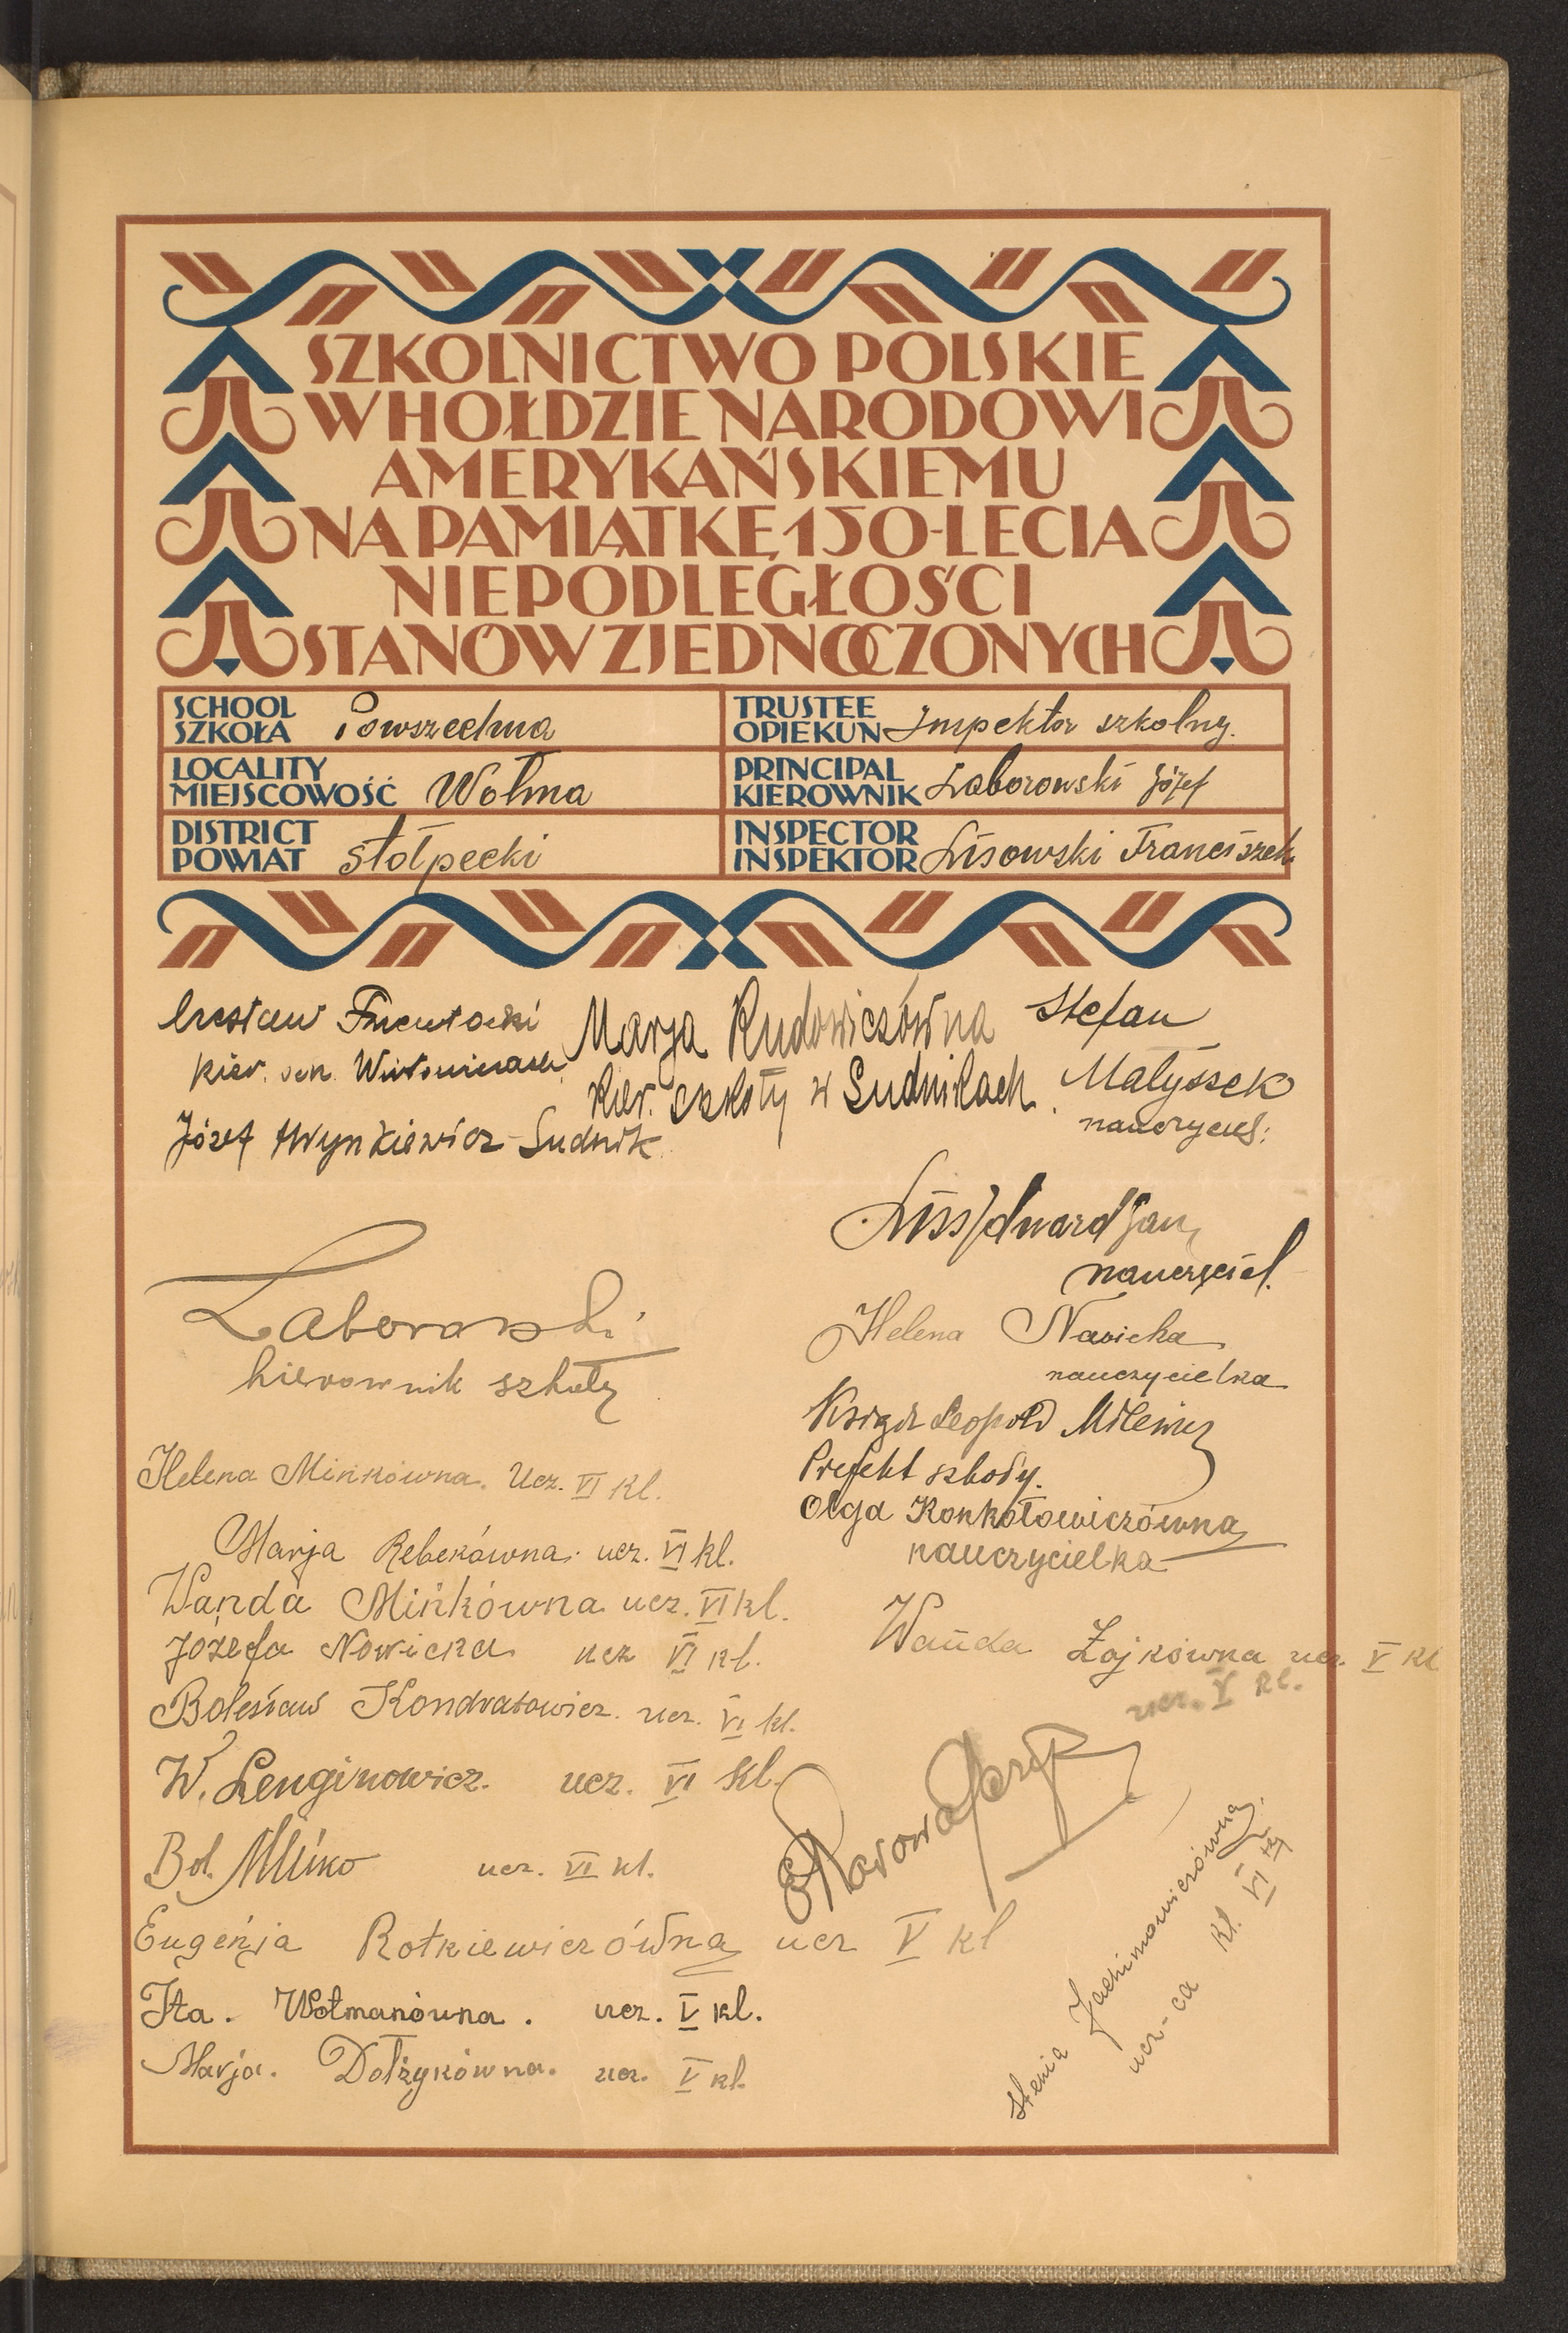 SZKOLNICTWO POLSKIE
W HOŁDZIE NARODOWI
AMERYKAŃSKIEMU
NA PAMIĄTKĘ 150-LECIA
NIEPODLEGŁOŚCI
STANÓW ZJEDNOCZONYCH
SCHOOL
SZKOŁA Powszechna
TRUSTEE
OPIEKUN Inspektor szkolny.
LOCALITY
MIEJSCOWOŚĆ Wołma
PRINCIPAL
KIEROWNIK Zaborowski Józef
DISTRICT
POWIAT stołpecki
INSPECTOR
INSPEKTOR Lisowski Franciszek
Czesław
Kier. szk.
Marja Rudowiczówna
Kier. szkoły w Sudnikach.
Stefan
Matyssek
nauczyciel:
Józef Hrynkiewicz-Sudnik
Liss Edward Jan
nauczyciel.
Zaborowski
kierownik szkoły
Helena Nowicka
nauczycielka
Ksiądz Leopold
Prefekt szkoły.
Olga Konkołowiczówna
nauczycielka
Helena Mińkówna. Ucz. VI kl.
Marja Rebekówna. ucz. VI kl.
Wanda Mińkówna ucz. VI kl.
Józefa Nowicka ucz VI kl.
Bolesław Kondratowicz. ucz. VI kl.
W. Lenginowicz. ucz. VI kl.
Bol. Mińko ucz. VI kl.
Eugenja Rotkiewiczówna ucz V kl
Ita. Wołmanówna. ucz. V kl.
Marja. Dołżykówna. ucz. V kl.
Wanda Zajkówna ucz. V kl
ucz. V kl.
Stenia Jachimowiczówna.
ucz-ca kl. VI ej